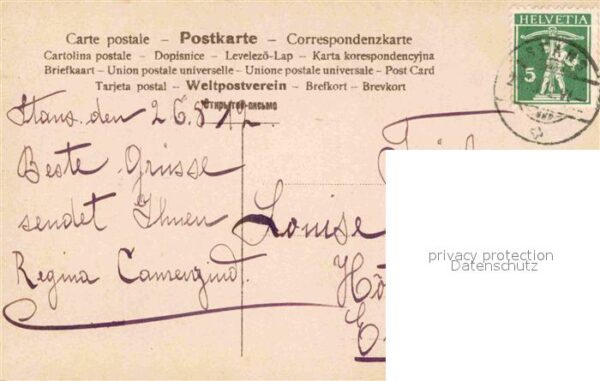 Carte postale – Postkarte – Correspondenzkarte
Cartolina postale – Dopisnice – Levelező-Lap – Karta korespondencyjna
Briefkaart – Union postale universelle – Unione postale universale – Post Card
Tarjeta postal – Weltpostverein – Brefkort – Brevkort
Открытое письмо
HELVETIA
5
Stans. den 26.8/12.
Beste Grüsse
sendet Ihnen
Regina Camenzind.
Louise
privacy protection
Datenschutz